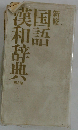 国語
漢和辞典